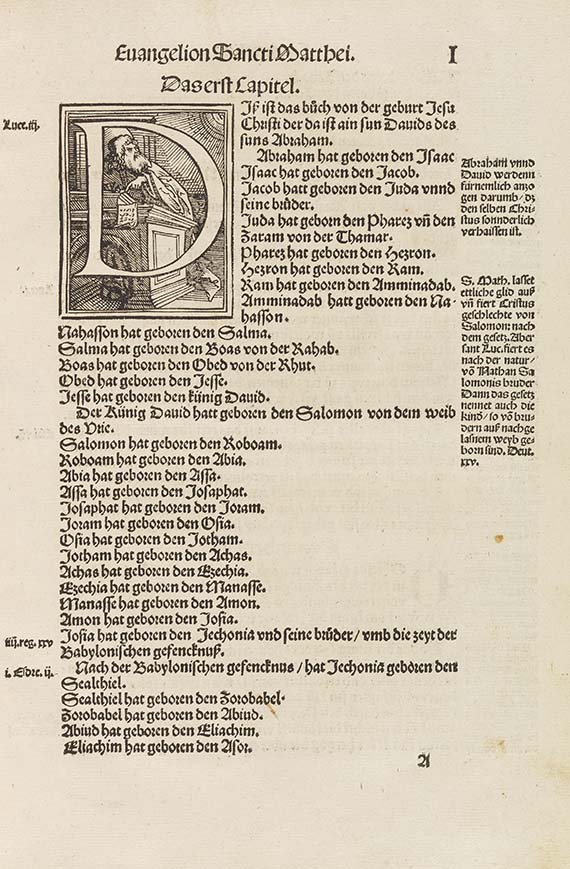 Euangelion Sancti Matthei.
I
Das erst Capitel.
Luce.iij.
D
Jß ist das bůch von der geburt Jesu
Christi der da ist ain sun Dauids des
suns Abraham.
Abraham hat geboren den Isaac
Isaac hat geboren den Jacob.
Jacob hatt geboren den Juda vnnd
seine brüder.
Juda hat geborn den Pharez vñ den
Zaram von der Thamar.
Pharez hat geboren den Hezron.
Hezron hat geboren den Ram.
Ram hat geboren den Amminadab.
Amminadab hatt geboren den Na-
hasson.
Nahasson hat geboren den Salma.
Salma hat geboren den Boas von der Rahab.
Boas hat geboren den Obed von der Rhut.
Obed hat geboren den Jesse.
Jesse hat geboren den künig Dauid.
Der Künig Dauid hatt geboren den Salomon von dem weib
des Vrie.
Salomon hat geboren den Roboam.
Roboam hat geboren den Abia.
Abia hat geboren den Assa.
Assa hat geboren den Josaphat.
Josaphat hat geboren den Joram.
Joram hat geboren den Osia.
Osia hat geboren den Jotham.
Jotham hat geboren den Achas.
Achas hat geboren den Ezechia.
Ezechia hat geboren den Manasse.
Manasse hat geboren den Amon.
Amon hat geboren den Josia.
iiij.reg. xxv
Josia hat geboren den Jechonia vnd seine brüder / vmb die zeyt der
Babylonischen gefencknuß.
i. Esdre. ij.
Nach der Babylonischen gefencknus / hat Jechonia geboren den
Sealthiel.
Sealthiel hat geboren den Zorobabel.
Zorobabel hat geboren den Abiud.
Abiud hat geboren den Eliachim.
Eliachim hat geboren den Asor.
A
Abraham vnnd
Dauid werdenn
fürnemlich anzo
gen darumb / dz
den selben Chri-
stus sonnderlich
verhaissen ist.
S. Math. lasset
ettliche glid auß
vñ fiert Cristus
geschlechte von
Salomon: nach
dem gesetz. Aber
sant Luc. fiert es
nach der natur /
võ Nathan Sa
lomonis bruder
Dann das gesetz
nennet auch die
kind / so võ brü-
dern auß nachge
lasnem weyb ge-
born sind. Deut.
xxv.